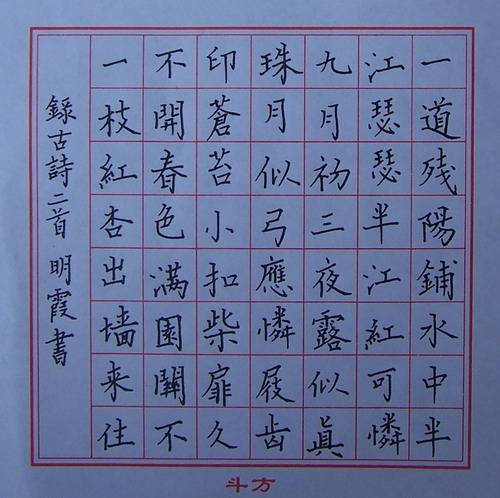 一道残陽鋪水中半
江瑟瑟半江紅可憐
九月初三夜露似眞
珠月似弓應憐屐齿
印蒼苔小扣柴扉久
不開春色满園關不
一枝紅杏出墙来住
錄古詩二首 明霞書
斗方